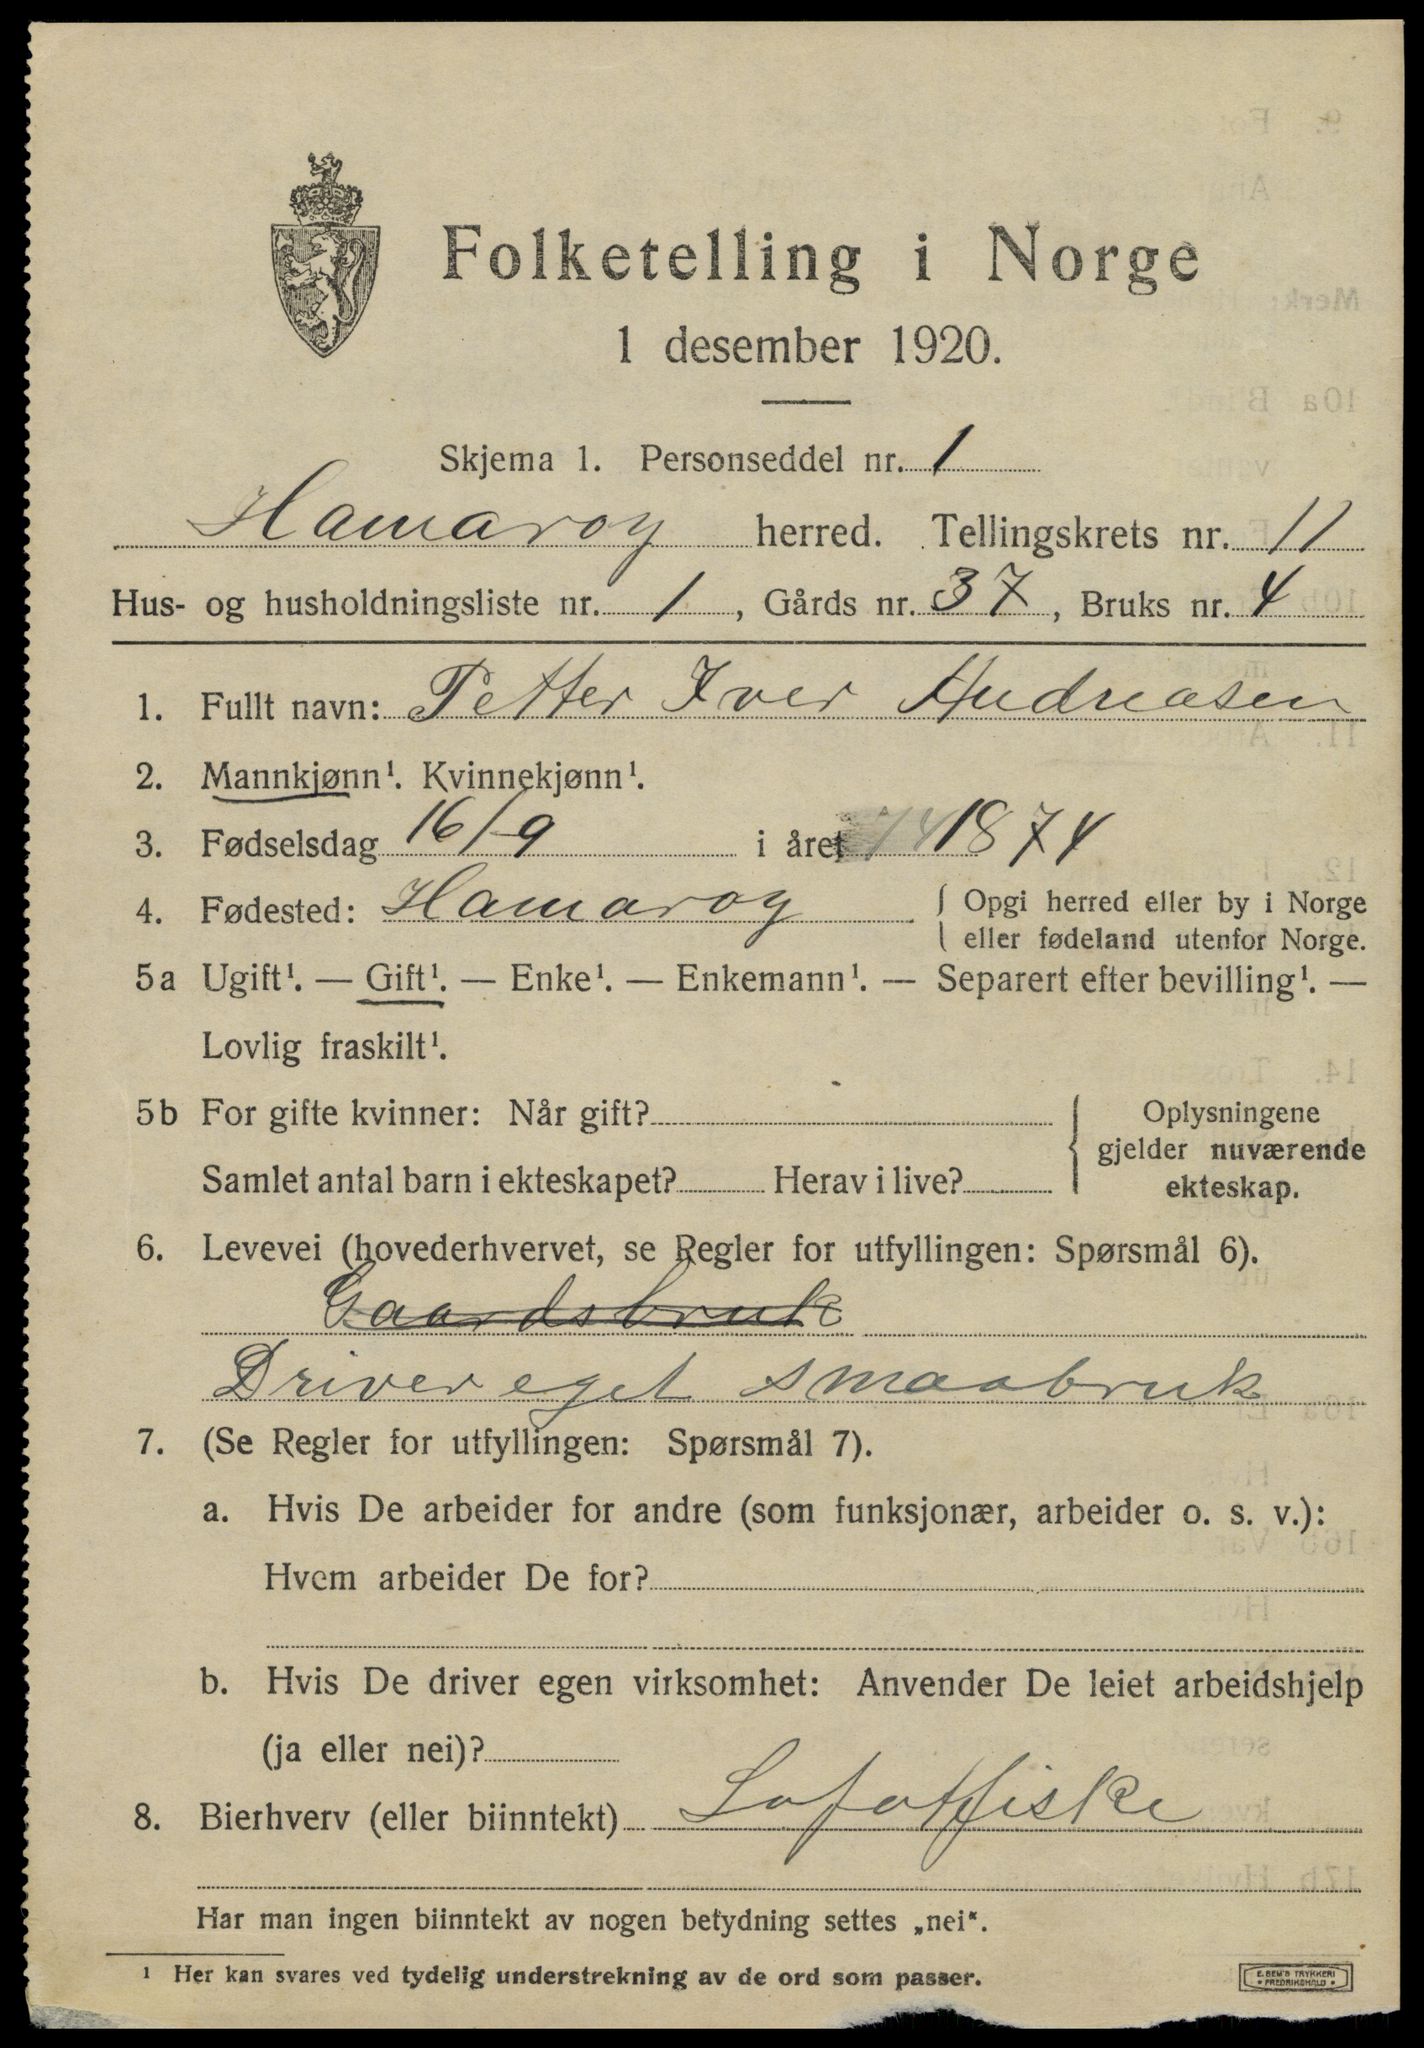 Folketelling i Norge
1 desember 1920.
Skjema 1. Personseddel nr. 1
Hamarøy herred. Tellingskrets nr. 11
Hus- og husholdningsliste nr. 1, Gårds nr. 37, Bruks nr. 4
1. Fullt navn: Petter Iver Andreasen
2. Mannkjønn¹. Kvinnekjønn¹.
3. Fødselsdag 16/9 i året 1874
4. Fødested: Hamarøy { Opgi herred eller by i Norge
eller fødeland utenfor Norge.
5a Ugift¹. — Gift¹. — Enke¹. — Enkemann¹. — Separert efter bevilling¹. —
Lovlig fraskilt¹.
5b For gifte kvinner: Når gift?
Samlet antal barn i ekteskapet? Herav i live?
Oplysningene
gjelder nuværende
ekteskap.
6. Levevei (hovederhvervet, se Regler for utfyllingen: Spørsmål 6).
Gaardsbruk
Driver eget smaabruk
7. (Se Regler for utfyllingen: Spørsmål 7).
a. Hvis De arbeider for andre (som funksjonær, arbeider o. s. v.):
Hvem arbeider De for?
b. Hvis De driver egen virksomhet: Anvender De leiet arbeidshjelp
(ja eller nei)?
8. Bierhverv (eller biinntekt) Lofotfiske
Har man ingen biinntekt av nogen betydning settes „nei“.
¹ Her kan svares ved tydelig understrekning av de ord som passer.
E. SEM'S TRYKKERI
• FREDRIKSHALD •